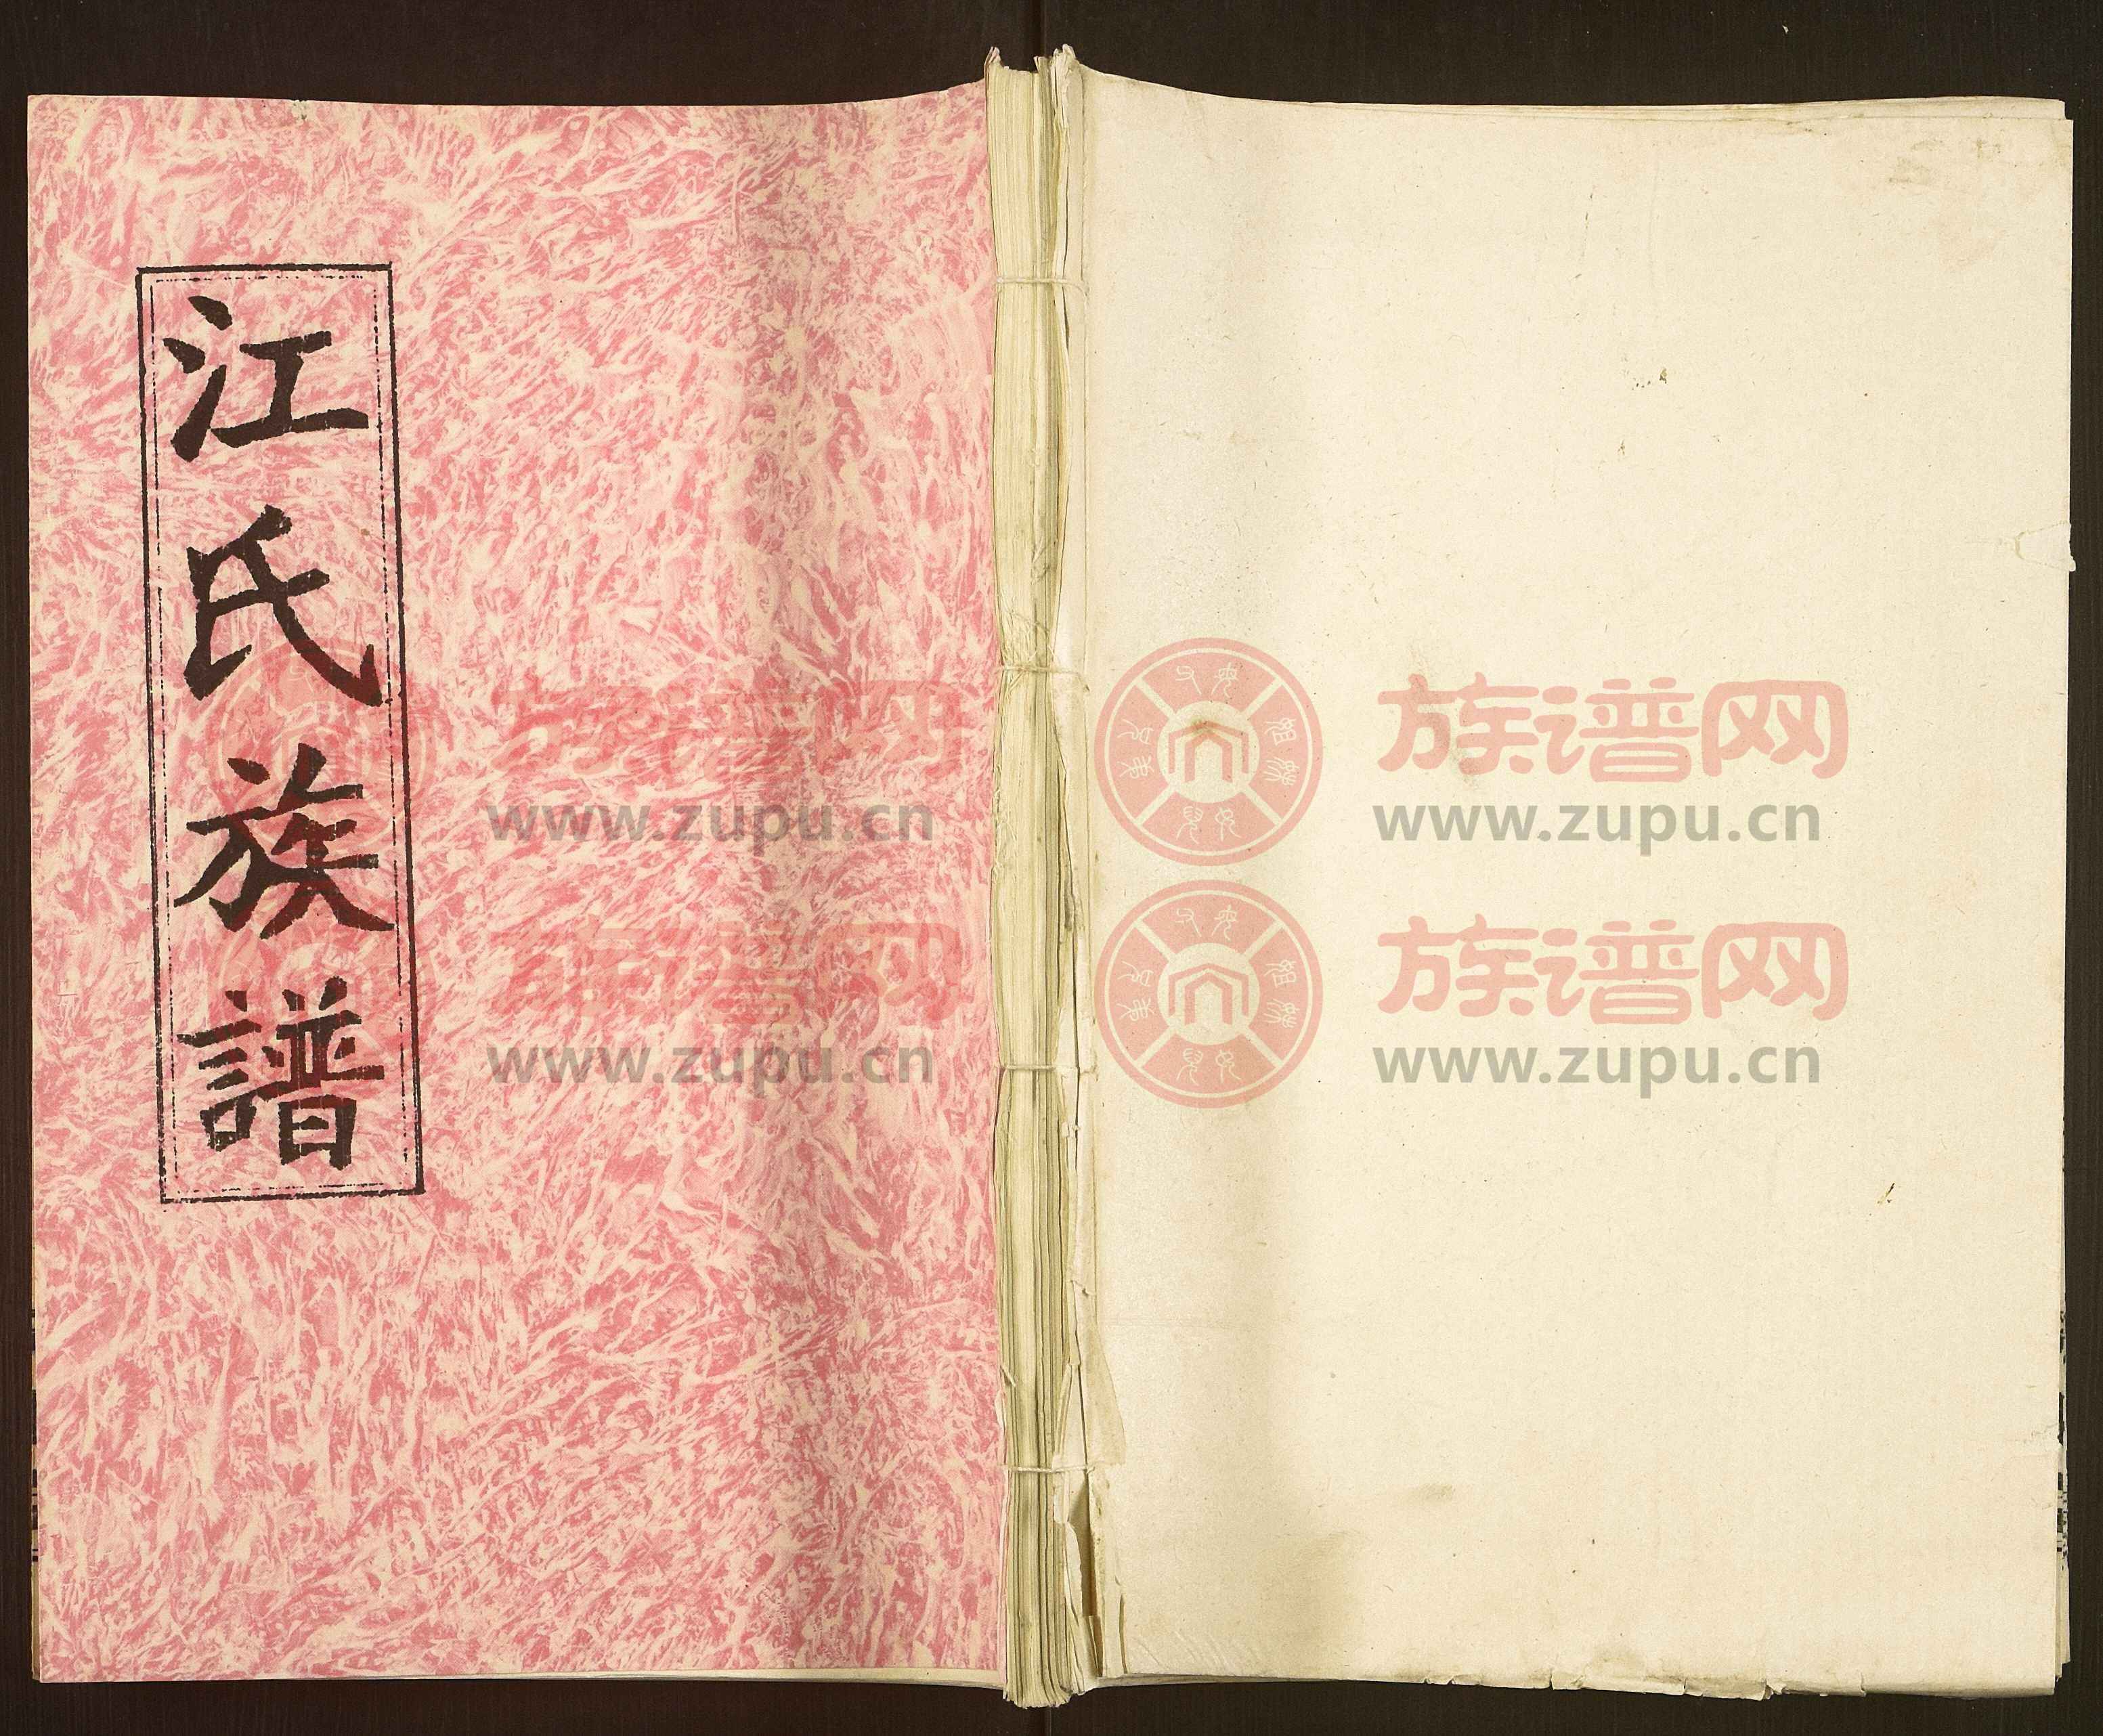 江氏族譜
族谱网
www.zupu.cn
族谱网
www.zupu.cn
族谱网
www.zupu.cn
族谱网
www.zupu.cn